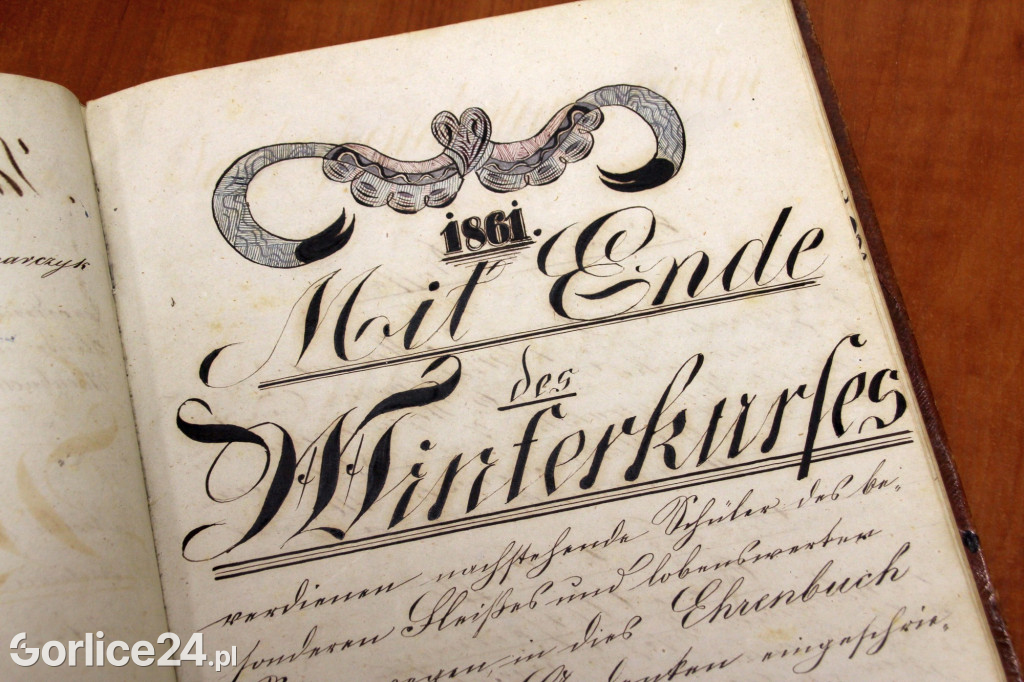 arczyk
1861.
Mit Ende
des
Winterkurſes
verdienen nachstehende Schüler des be-
sonderen Fleißes und lobenswerten
wegen, in dies Ehrenbuch
eingeschrie-
Gorlice24.pl